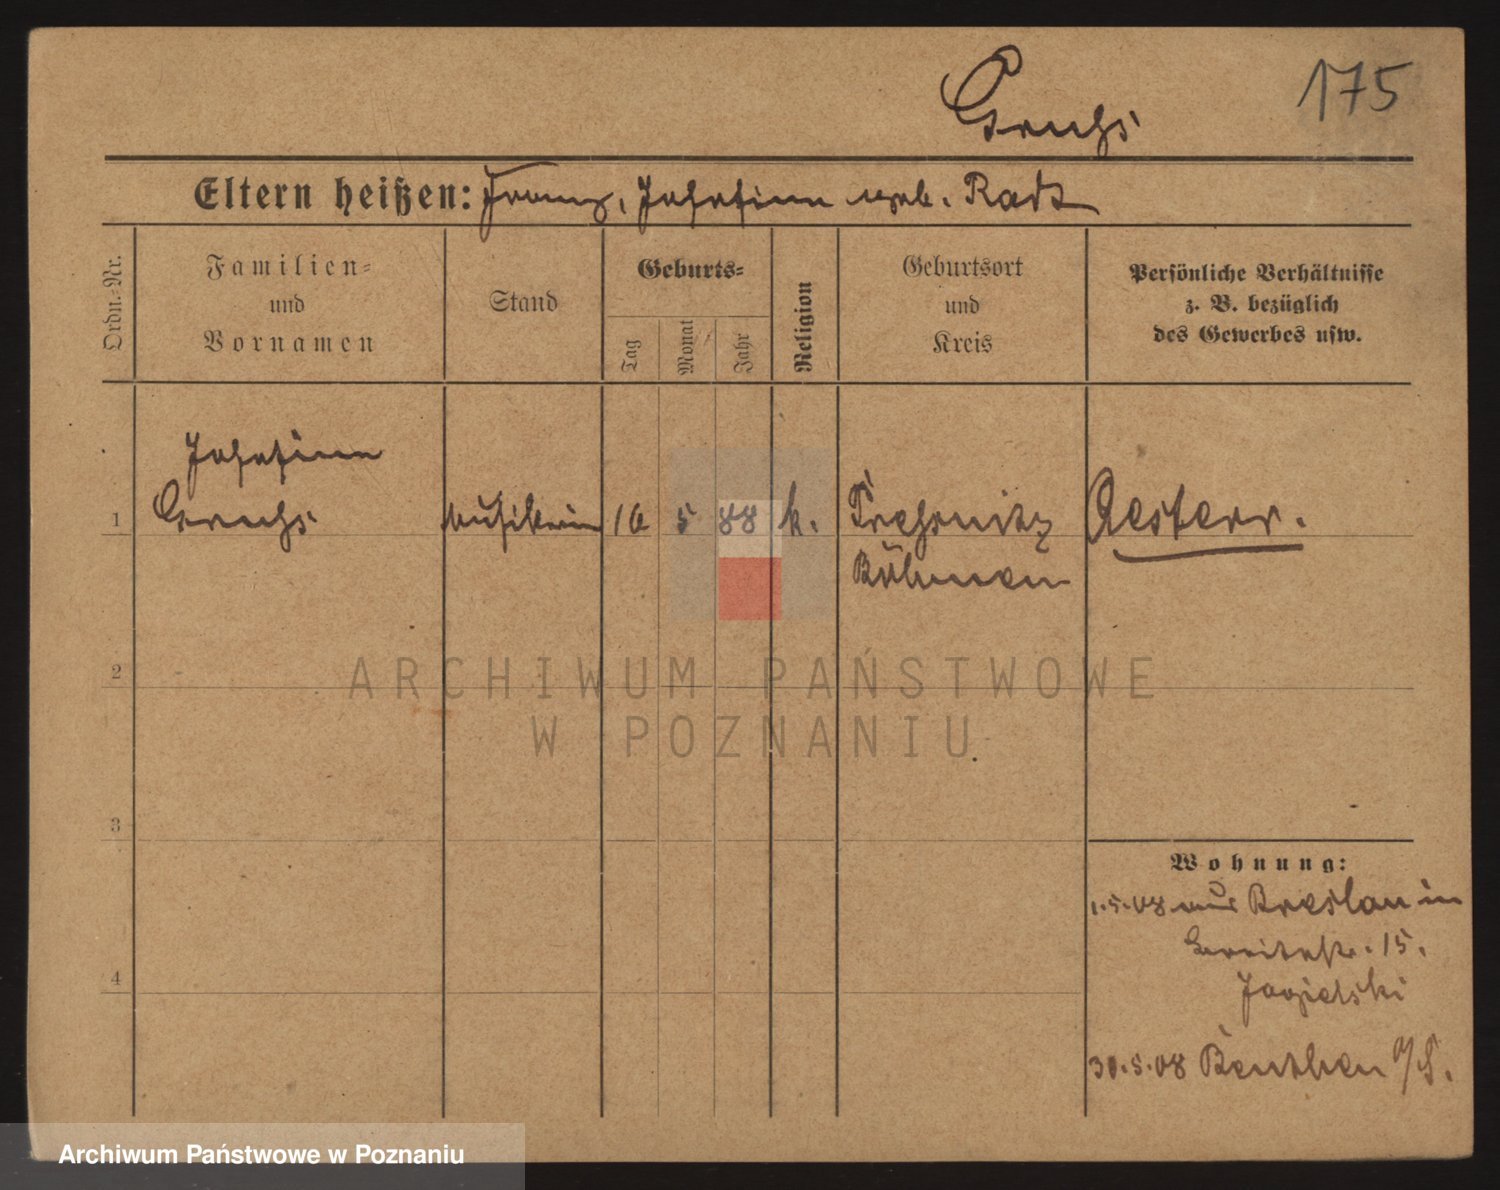 175
Eltern heißen: Franz, Josefine geb. Rads
Ordn.-Nr.
Familien-
und
Vornamen
Stand
Geburts-
Tag
Monat
Jahr
Religion
Geburtsort
und
Kreis
Persönliche Verhältnisse
z. B. bezüglich
des Gewerbes usw.
Josefine
1 Musikerin 16 5 88 k. Pressnitz Oesterr.
Böhmen
2
3
4
Wohnung:
1.5.08 aus Breslau in
Breitestr. 15.
Jagielski
30.5.08 Beuthen O/S.
ARCHIWUM PAŃSTWOWE
W POZNANIU
Archiwum Państwowe w Poznaniu